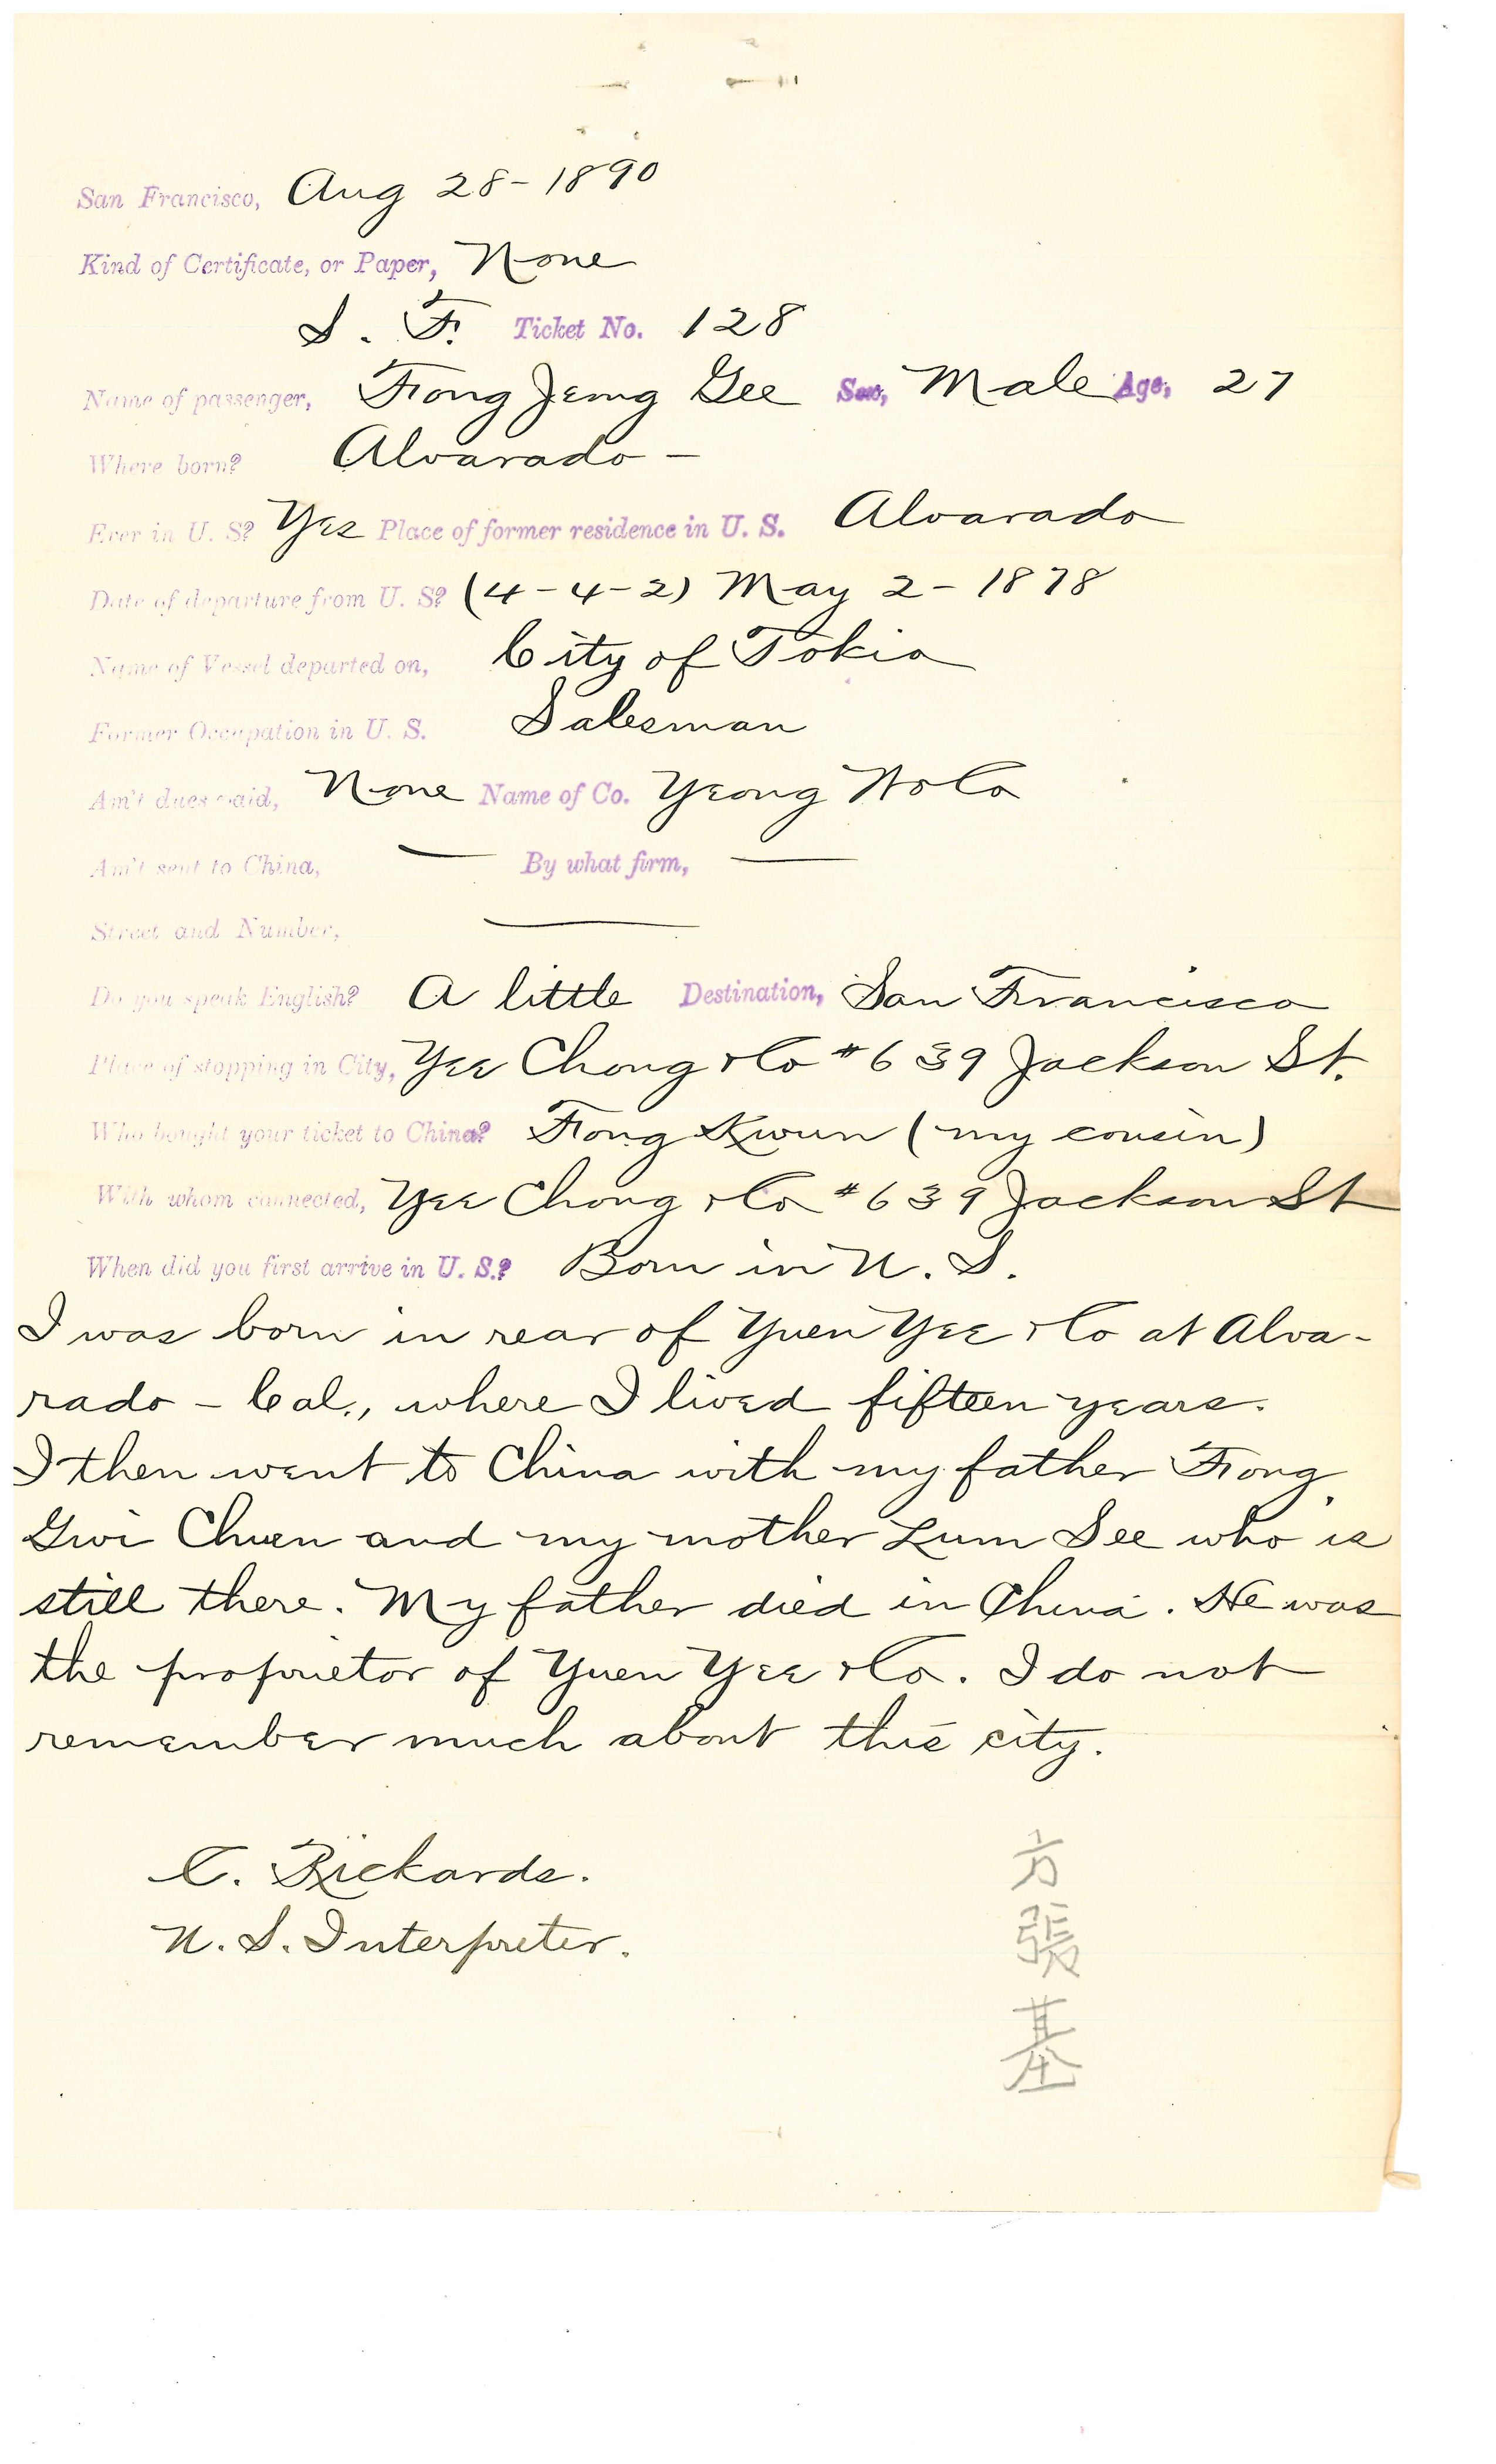 San Francisco, Aug 28 - 1890
Kind of Certificate, or Paper, None
S. F. Ticket No. 128
Name of passenger, Fong Jeung Gee Sex, Male Age, 27
Where born? Alvarado -
Ever in U. S? Yes Place of former residence in U. S. Alvarado
Date of departure from U. S? (4-4-2) May 2 - 1878
Name of Vessel departed on, City of Tokio
Former Occupation in U. S. Salesman
Am't dues paid, None Name of Co. Yeong Wo Co
Am't sent to China, — By what firm, —
Street and Number, —
Do you speak English? A little Destination, San Francisco
Place of stopping in City, Yee Chong & Co # 639 Jackson St.
Who bought your ticket to China? Fong Kwun (my cousin)
With whom connected, Yee Chong & Co # 639 Jackson St
When did you first arrive in U. S.? Born in U. S.
I was born in rear of Yuen Yee & Co at Alva-
rado - Cal., where I lived fifteen years.
I then went to China with my father Fong
Gwi Chuen and my mother Lum See who is
still there. My father died in China. He was
the proprietor of Yuen Yee & Co. I do not
remember much about this city.
C. Rickards.
U. S. Interpreter.
方
張
基